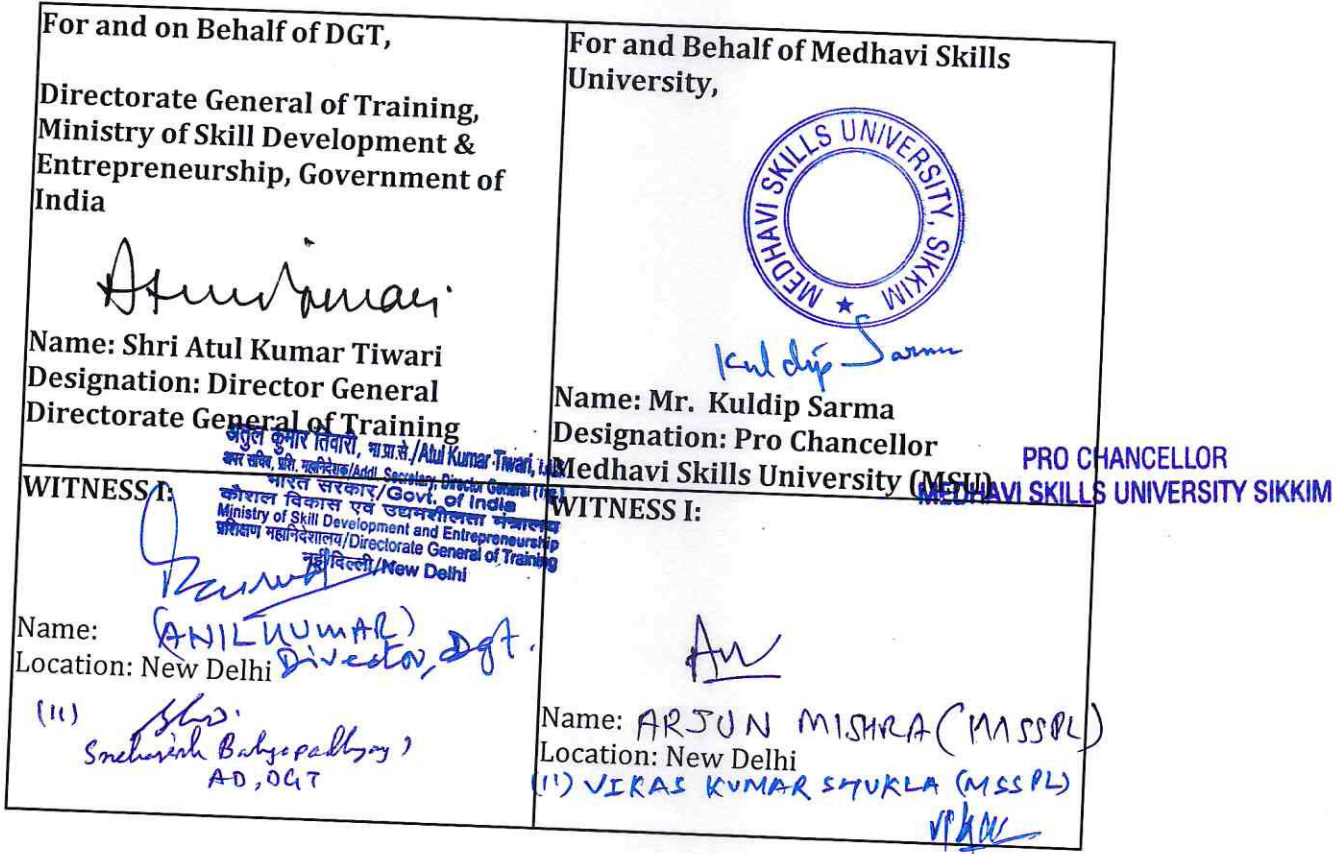 For and on Behalf of DGT,
Directorate General of Training,
Ministry of Skill Development &
Entrepreneurship, Government of
India
Name: Shri Atul Kumar Tiwari
Designation: Director General
Directorate General of Training
अतुल कुमार तिवारी, भा.प्र.से./Atul Kumar Tiwari,
अपर सचिव, प्रशि. महानिदेशक/Addl. Secretary, Director General
भारत सरकार/Govt. of India
कौशल विकास एवं उद्यमशीलता मंत्रालय
Ministry of Skill Development and Entrepreneurship
प्रशिक्षण महानिदेशालय/Directorate General of Training
नई दिल्ली/New Delhi
For and Behalf of Medhavi Skills
University,
MEDHAVI SKILLS UNIVERSITY, SIKKIM
Kuldip Sarma
Name: Mr. Kuldip Sarma
Designation: Pro Chancellor
Medhavi Skills University (MSU)
PRO CHANCELLOR
MEDHAVI SKILLS UNIVERSITY SIKKIM
WITNESS I:
Name: (ANIL KUMAR)
Location: New Delhi Director, Dgt.
(II)
AD, DGT
WITNESS I:
Name: ARJUN MISHRA (MSSPL)
Location: New Delhi
(II) VIKAS KUMAR SHUKLA (MSSPL)